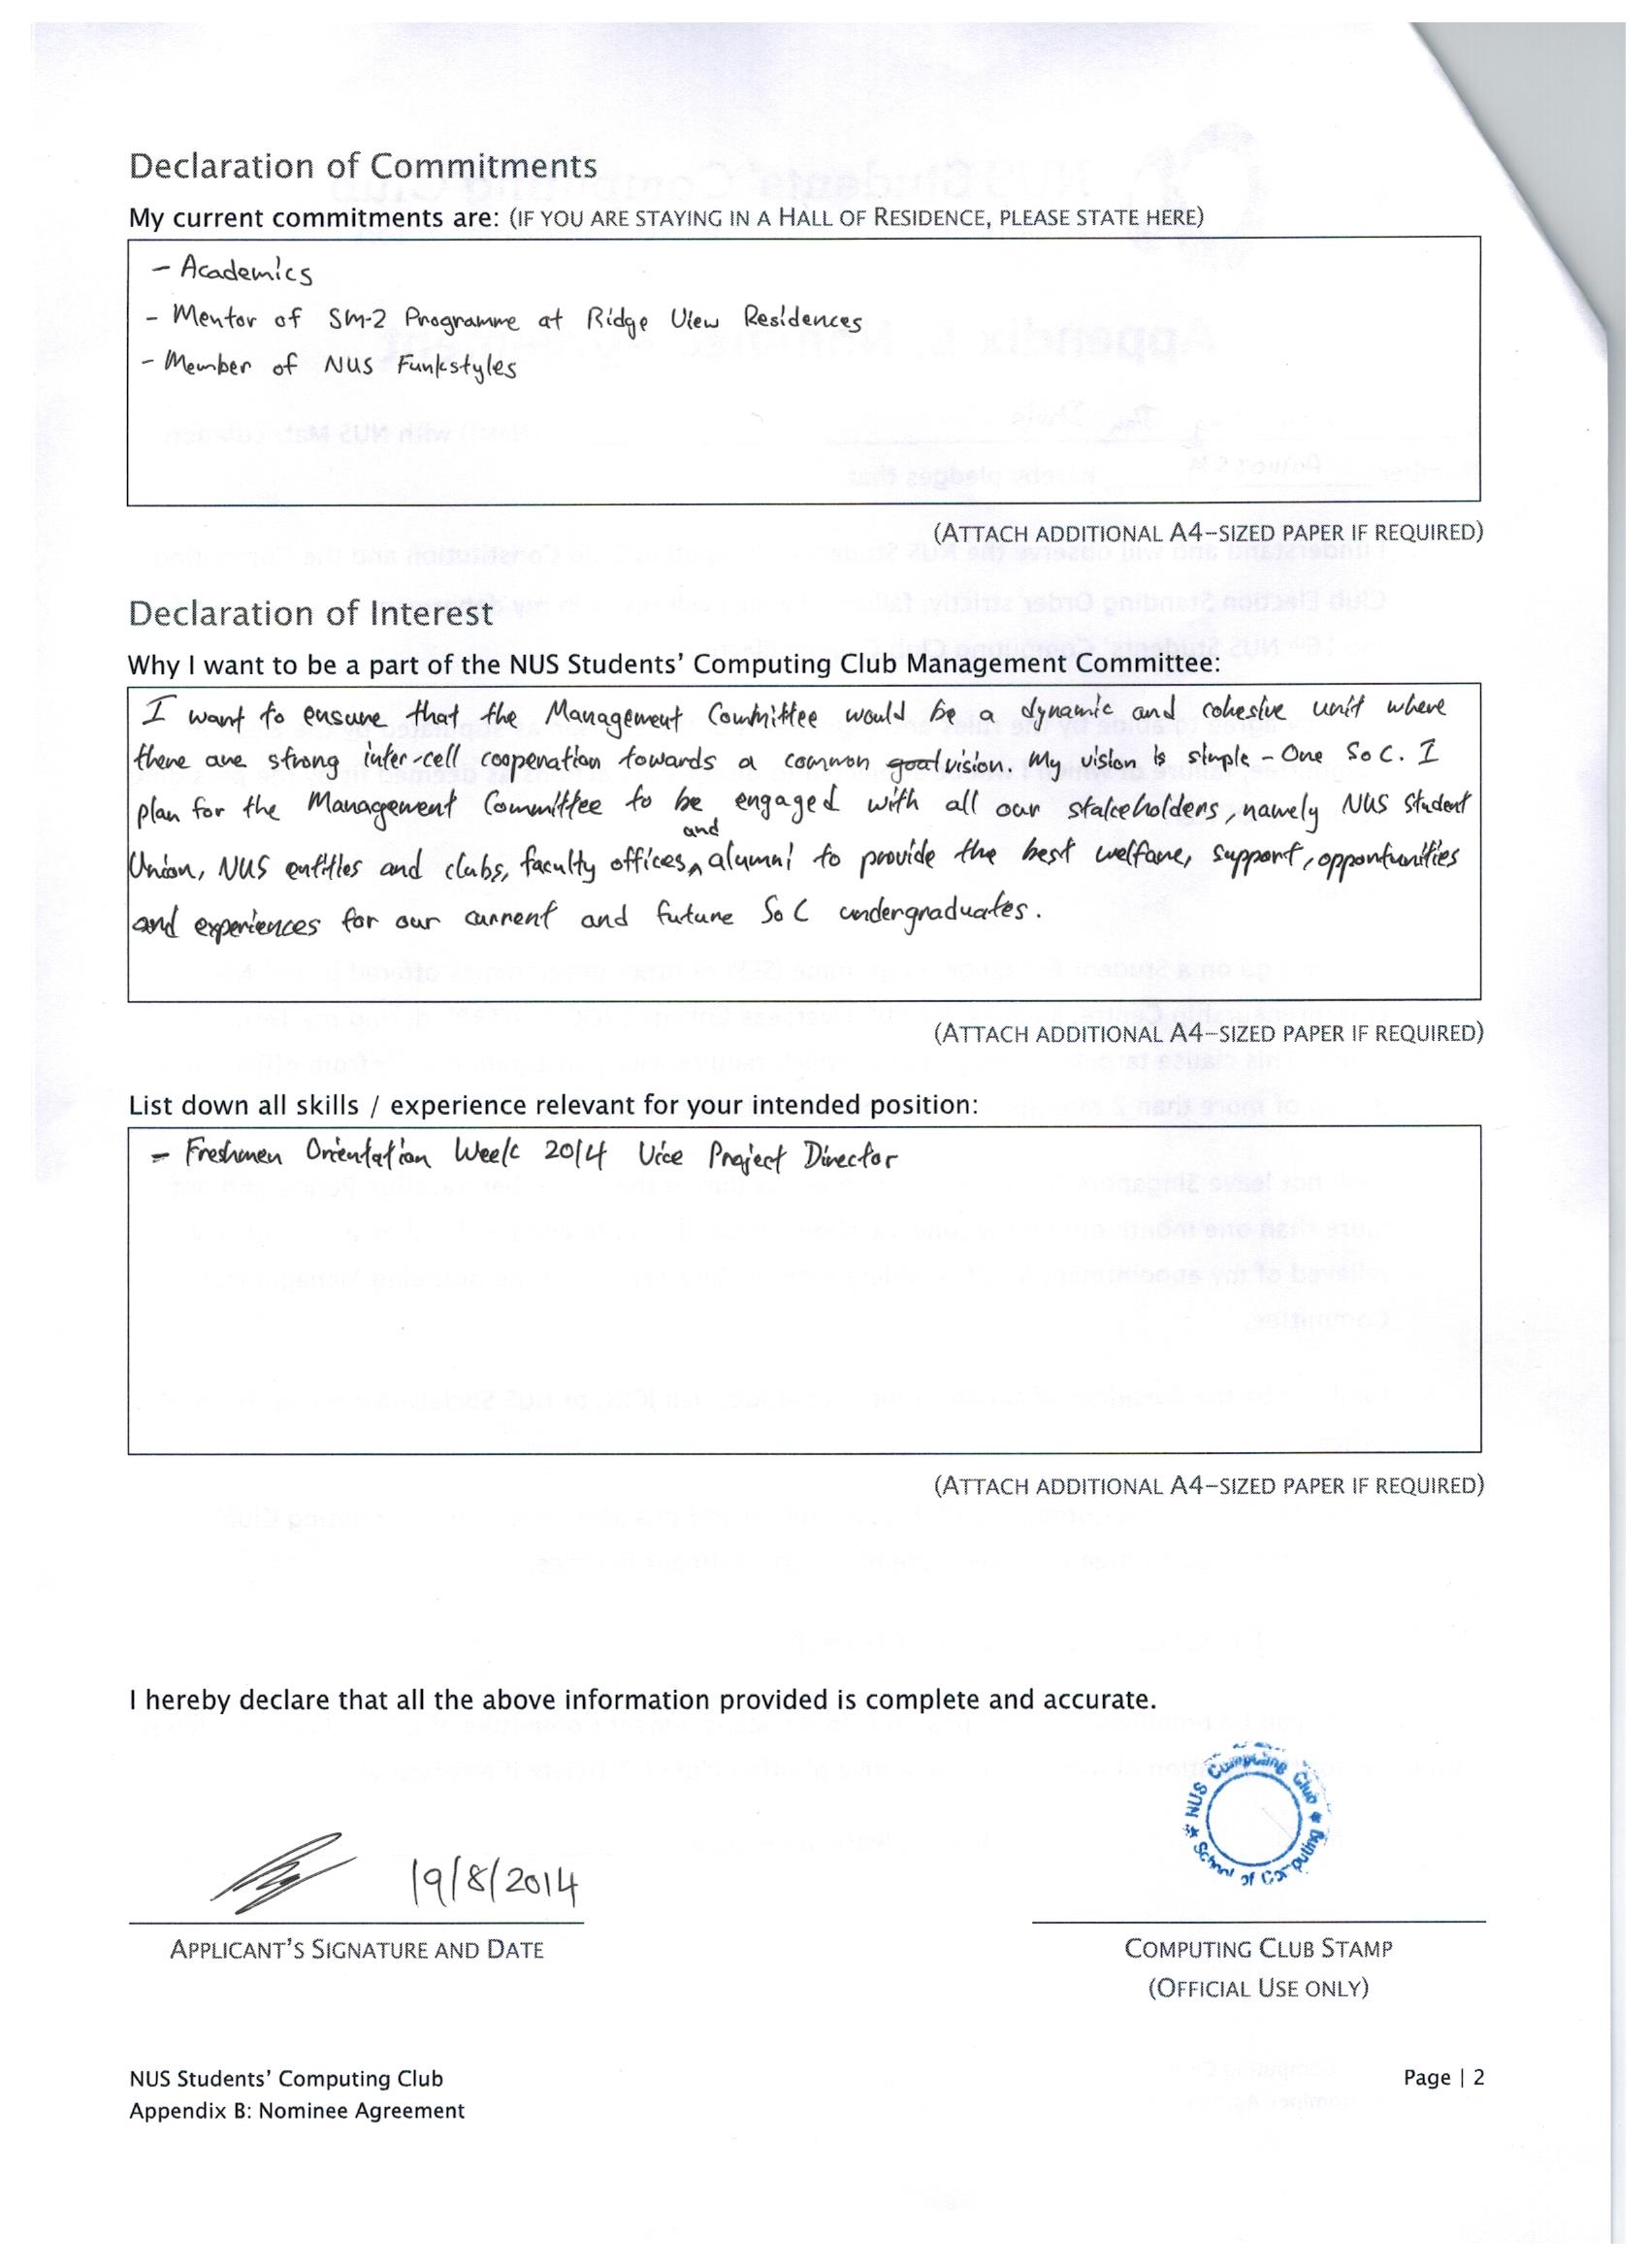 Declaration of Commitments
My current commitments are: (IF YOU ARE STAYING IN A HALL OF RESIDENCE, PLEASE STATE HERE)
- Academics
- Mentor of SM-2 Programme at Ridge View Residences
- Member of NUS Funkstyles
(ATTACH ADDITIONAL A4-SIZED PAPER IF REQUIRED)
Declaration of Interest
Why I want to be a part of the NUS Students' Computing Club Management Committee:
I want to ensure that the Management Committee would be a dynamic and cohesive unit where
there are strong inter-cell cooperation towards a common goal vision. My vision is simple - One SoC. I
plan for the Management Committee to be engaged with all our stakeholders, namely NUS Student
Union, NUS entities and clubs, faculty offices and alumni to provide the best welfare, support, opportunities
and experiences for our current and future SoC undergraduates.
(ATTACH ADDITIONAL A4-SIZED PAPER IF REQUIRED)
List down all skills / experience relevant for your intended position:
- Freshmen Orientation Week 2014 Vice Project Director
(ATTACH ADDITIONAL A4-SIZED PAPER IF REQUIRED)
I hereby declare that all the above information provided is complete and accurate.
NUS Computing Club
School of Computing
19/8/2014
APPLICANT'S SIGNATURE AND DATE
COMPUTING CLUB STAMP
(OFFICIAL USE ONLY)
NUS Students' Computing Club
Page | 2
Appendix B: Nominee Agreement